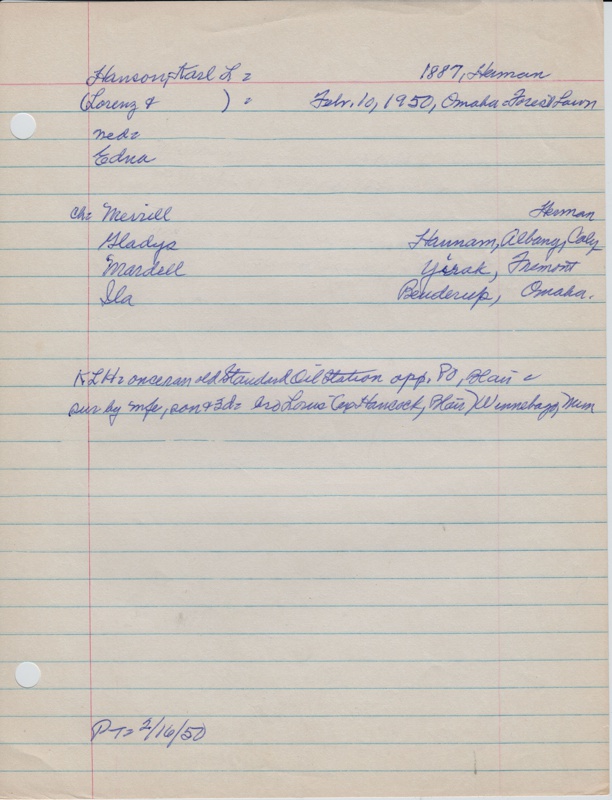 Hanson, Karl L = 1887, Herman
(Lorenz & ) = Febr. 10, 1950, Omaha = Forest Lawn
ned =
Edna
ch = Merrill Herman
Gladys Hannam, Albany, Caly
Mardell Yirak, Fremont
Ila Benderup, Omaha.
KLH = once ran old Standard Oil Station opp. PO, Blair =
sur by wife, son & 3d = bro Louis (ex-Hancock, Blair) Winnebago, Minn
PT = 2/16/50